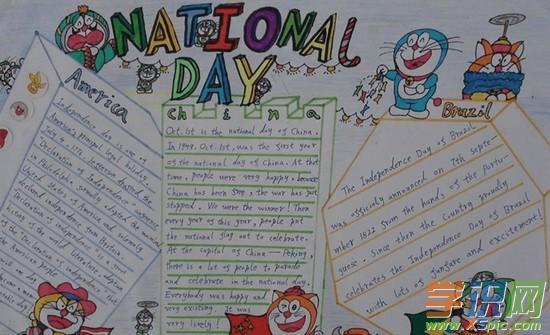 NATIONAL
DAY
America
Independence day is one of
America's principal legal holiday.
July 4 1776 Jefferson drafted the
Declaration of Independence
in Philadelphia, formally adopted the
United States of America and formally
declared the separation from Britain.
Declaration of Independence is a
china
Oct. 1st is the national day of China.
In 1949. Oct. 1st, was the first year
of the national day of China. At that
time, people were very happy, because
China has been
stopped. We were the winner! Then
every year of this year, people put
the national flag out to celebrate.
At the capital of China — Peking,
there is a lot of people to parade
and celebrate in the national day.
Everybody was happy and
very existing. It was
very lively!
Brazil
The Independence Day of Brazil
was officially announced on 7th Septe-
mber 1822 from the hands of the Portu-
guese. Since then the Country proudly
celebrates the Independence Day of Brazil
with lots of fanfare and excitement!
学识网
www.xspic.com